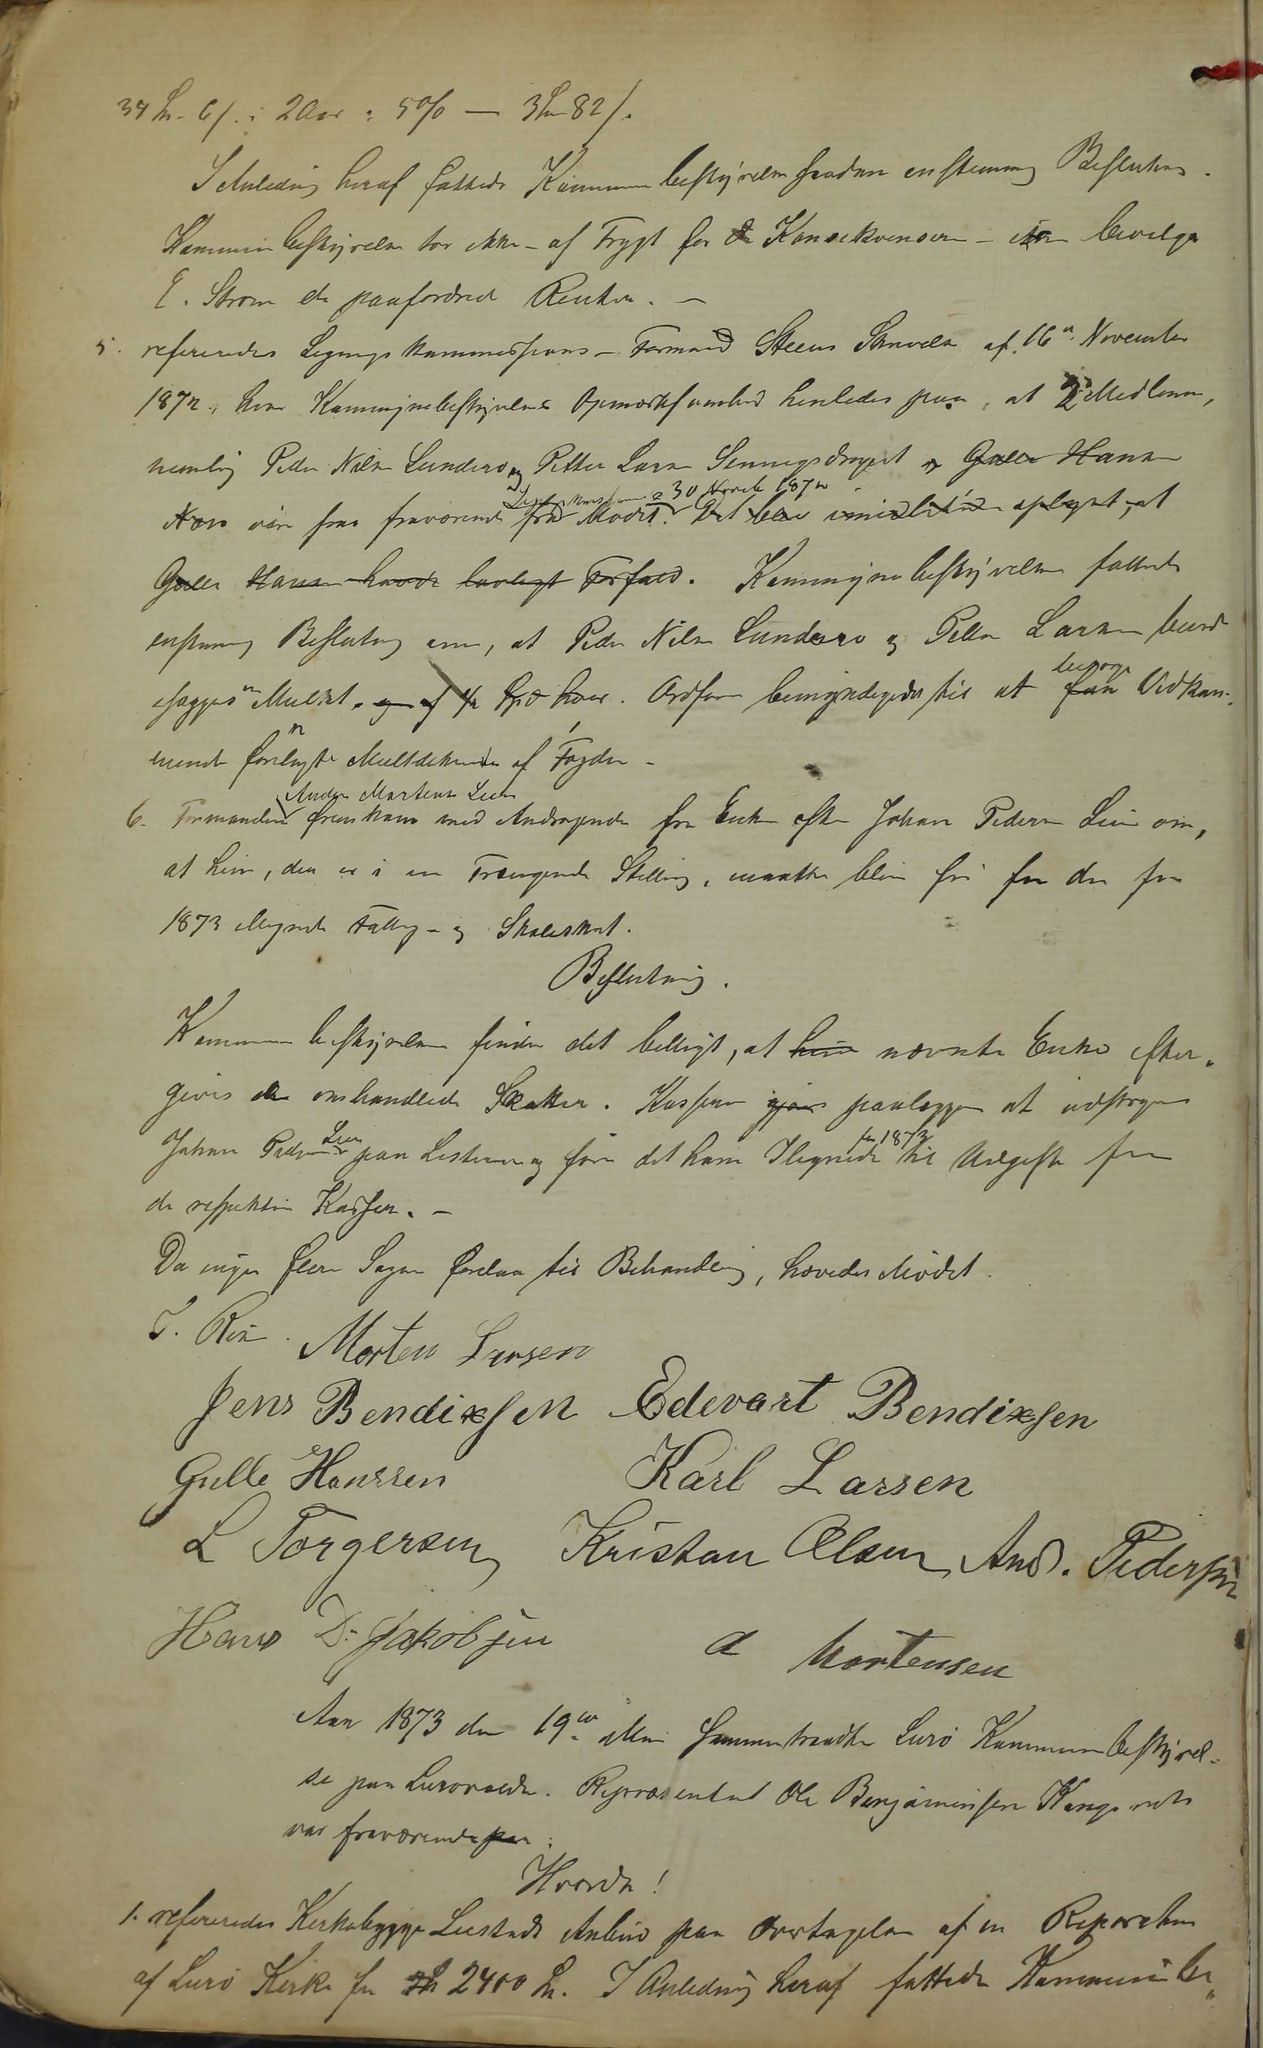 I Anledning heraf fattede Kommunebestyrelsen saadan enstemmig Beslutning.
Kommunebestyrelsen tør ikke - af Frygt for Konsekvensen - bevilge
E. Strøm de paafordrede Renter. -
5. refereredes Ligningskommissions - Formand Steens Skrivelse af 16de November
1872, hvor Kommunebestyrelsens Opmærksomhed henledes paa, at 2 Medlemmer,
nemlig Peder Nilsen Lunderø og Petter Larsen og Gulle Hansen
Næs var fraværende fra Mødet. 30 Novb 1872. Det blev imidlertid oplyst, at
Gulle Hansen havde lovligt Forfald. Kommunebestyrelsen fattede
enstemmig Beslutning om, at Peder Nilsen Lunderø og Petter Larsen burde
ilægges Mulkt. og af hver. Ordføreren bemyndigedes til at besørge faa Vedkom-
mende forelagt Mulktdekretet af Fogden -
6. Formanden Anders Mortensen Lien fremkom med Andragende fra Enken efter Johan Pedersen Lien om,
at hun, der er i en Trængende Stilling, maatte blive fri for den for
1873 ilignede Fattig- og Skoleskat.
Beslutning.
Kommunebestyrelsen finder det billigt, at hun nævnte Enke efter-
gives de omhandlede Skatter. Kassereren paalægges at udstryge
Johan Pedersen Lien paa Listerne og føre det ham Ilignede for 1873 til Udgift for
de respektive Kasser. -
Da ingen flere Sager forelaa til Behandling, hævedes Mødet.
Morten Larsen
Jens Bendixsen Edevart Bendixsen
Gulle Hanssen Karl Larsen
L Torgersen Kristan Olsen, And. Pedersen
Hans D. Jakobsen A Mortensen
Aar 1873 den 19de Mai sammentraadte Lurø Kommunebestyrel-
se paa Lurøvalde. Repræsentant Ole Benjaminsen
var fraværende
Hvorda!
1. refereredes Kirkebygger Anbud paa Overtagelse af en Reparation
af Lurø Kirke for 2400 I Anledning heraf fattede Kommunebe-